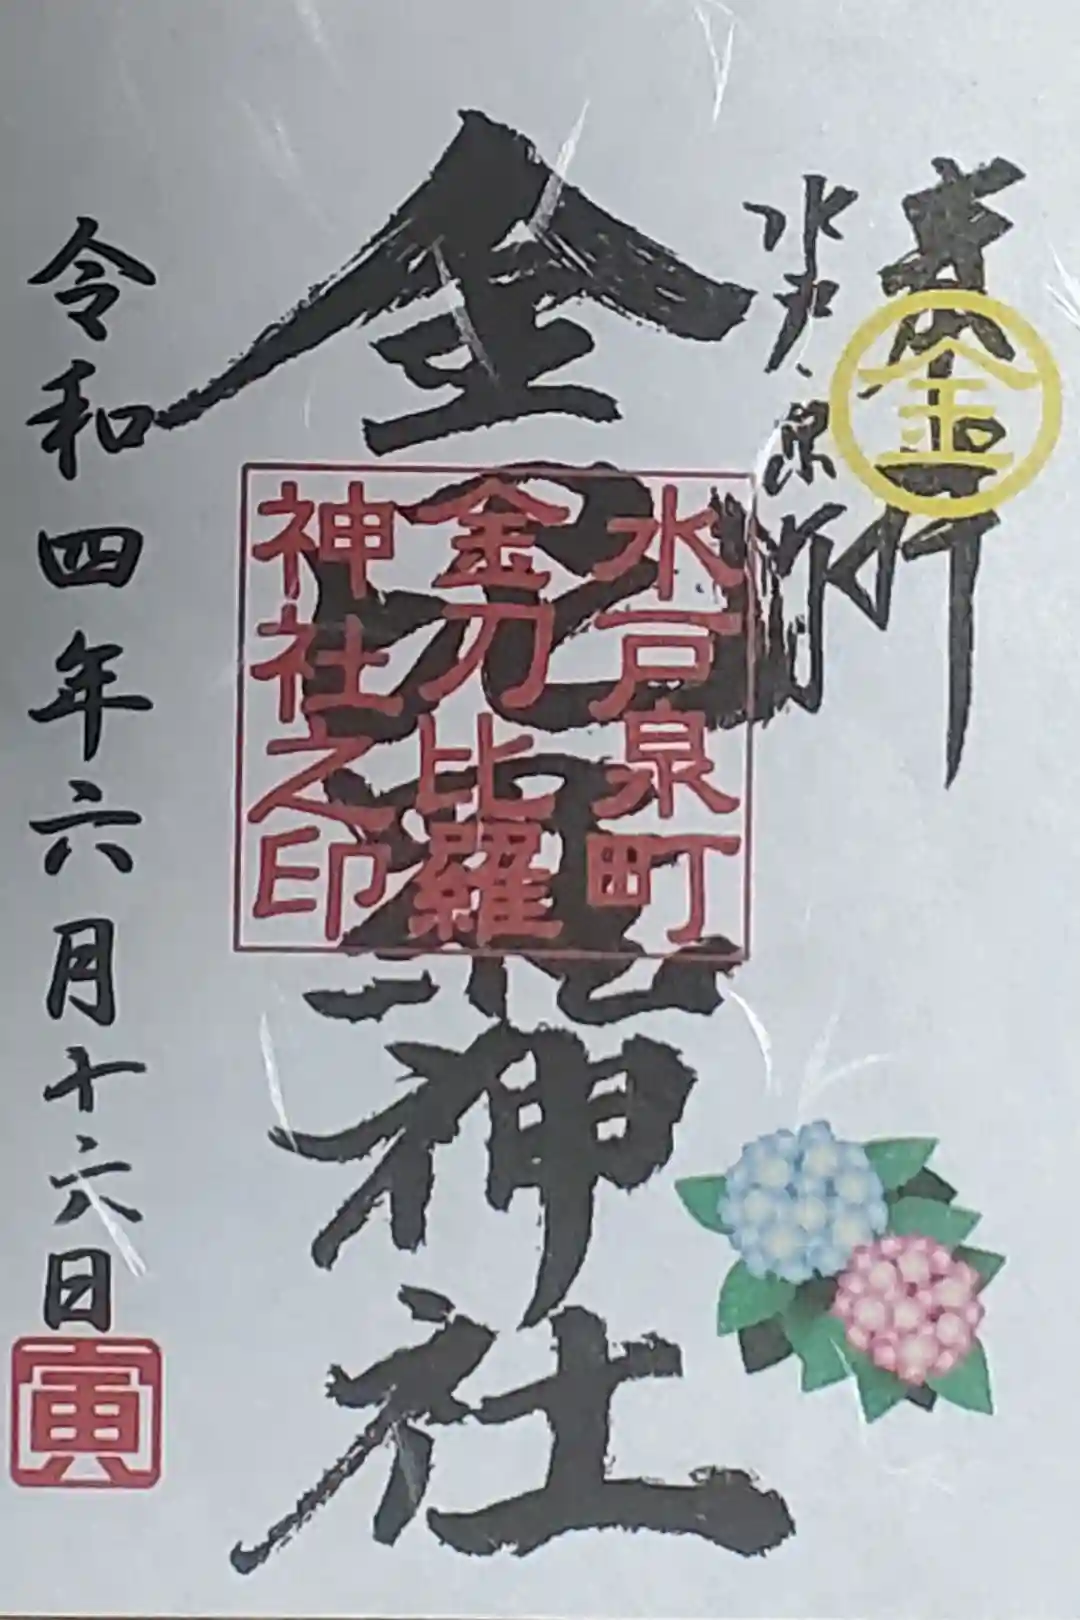 奉拝
金
水戸泉町
金刀比羅神社
水戸泉町
金刀比羅
神社之印
令和四年六月十六日
寅